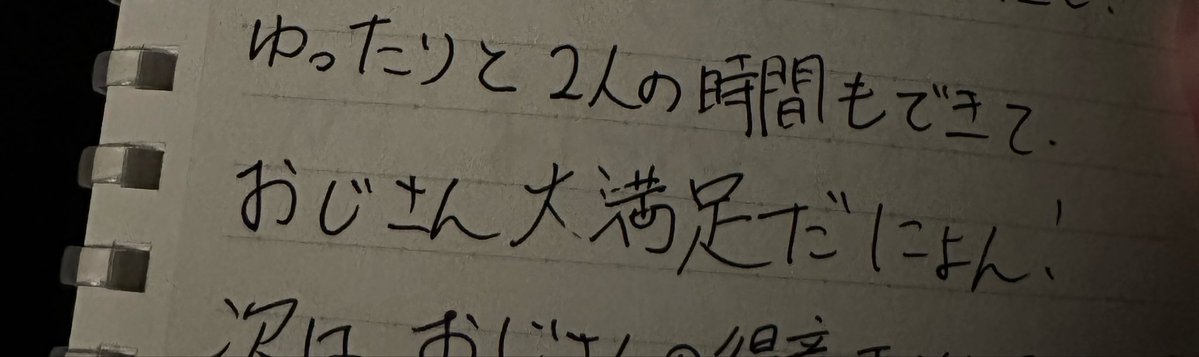 ゆったりと2人の時間もできて.
おじさん大満足だにょん!
次は おじさんの得意